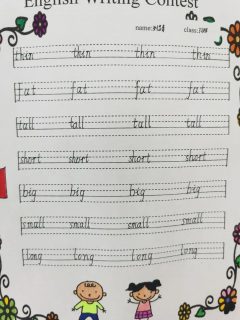 English Writing Contest
name: class:
thin thin thin thin
fat fat fat fat
tall tall tall tall
short short short short
big big big big
small small small small
long long long long